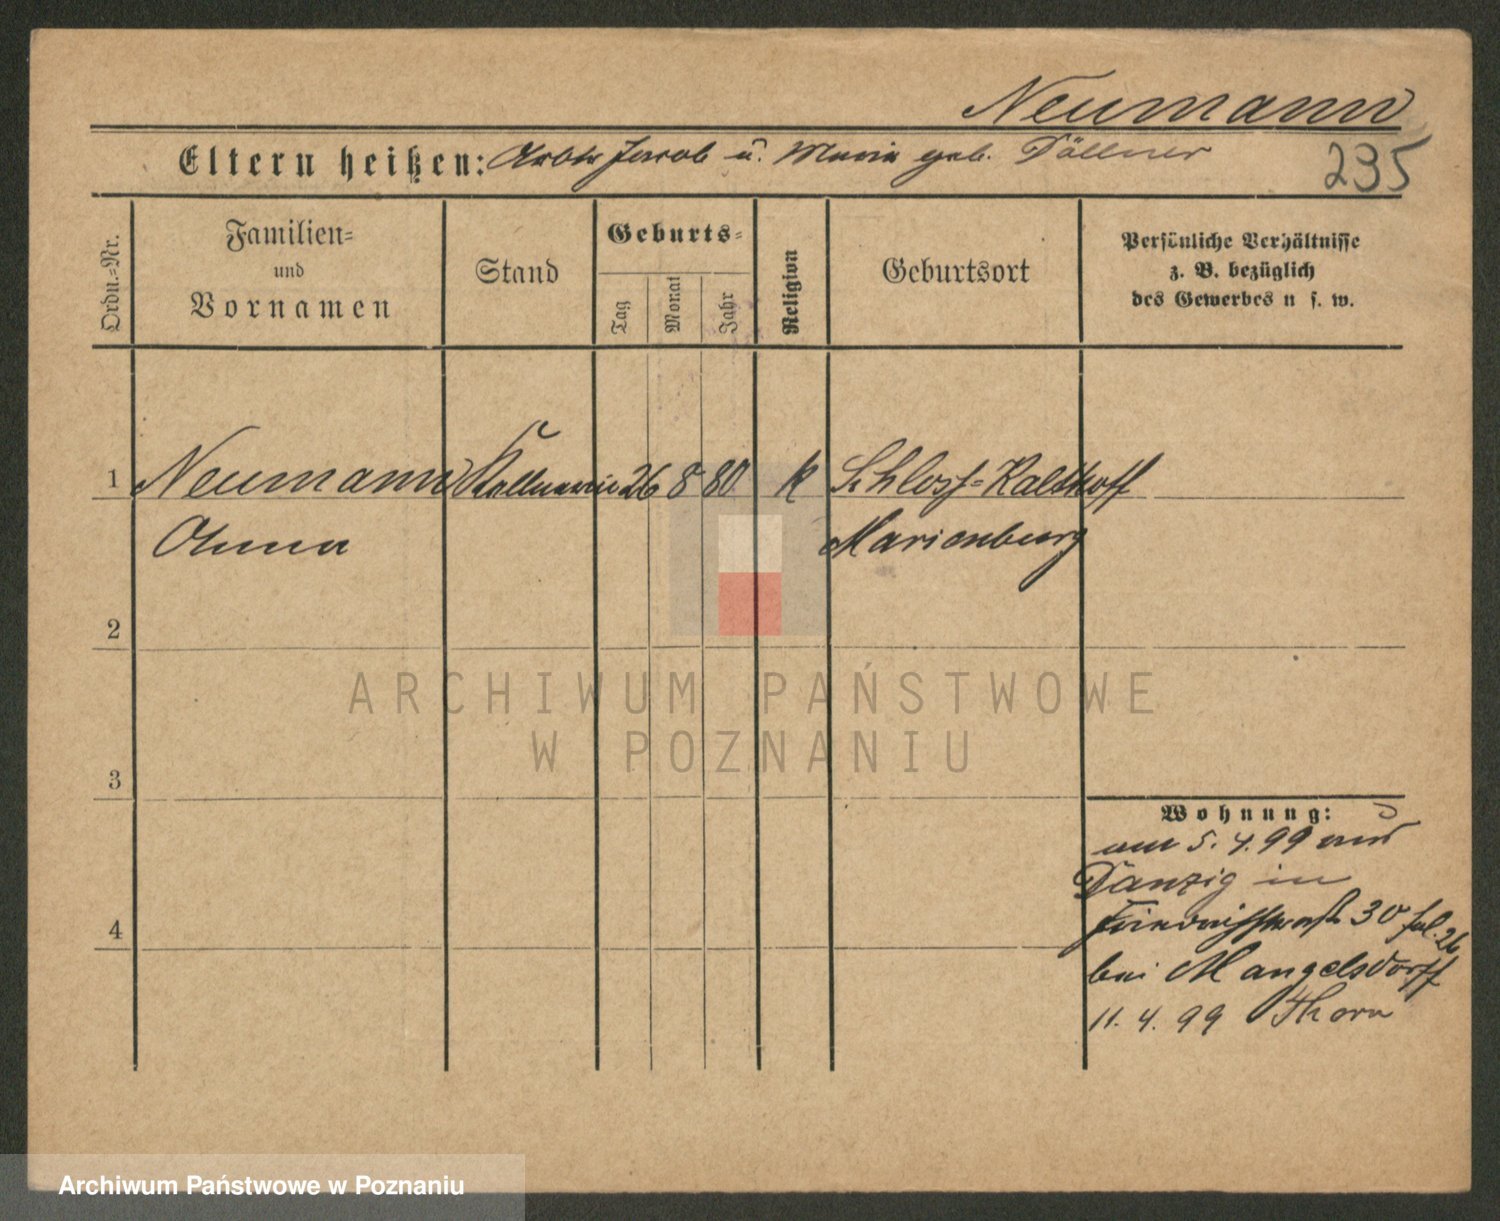 Neumann
Eltern heißen: Arbtr Jacob u. Maria geb. Döllner
235
Ordn.=Nr.
Familien=
und
Vornamen
Stand
Geburts=
Tag
Monat
Jahr
Religion
Geburtsort
Persönliche Verhältnisse
z. B. bezüglich
des Gewerbes u s. w.
1 Neumann Kellnerin 26 8 80 k Schloss=Kalthoff
Anna Marienburg
2
ARCHIWUM PAŃSTWOWE
W POZNANIU
3
Wohnung:
am 5. 4. 99 aus
Danzig in
4
30
bei Mangelsdorff
11. 4. 99 Thorn
Archiwum Państwowe w Poznaniu